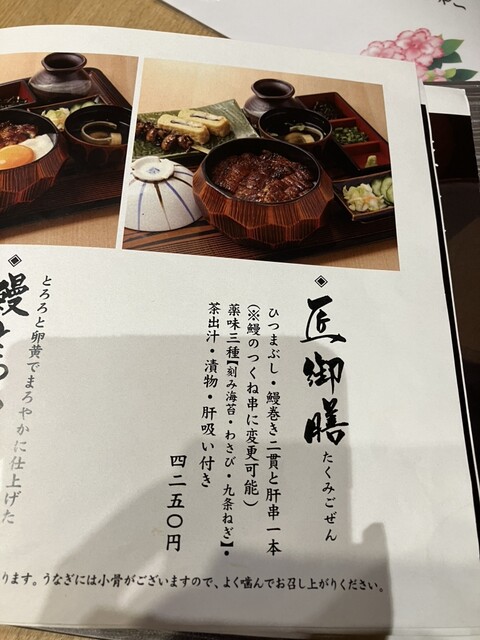 匠御膳
たくみごぜん
ひつまぶし・鰻巻き二貫と肝串一本
(※鰻のつくね串に変更可能)
薬味三種【刻み海苔・わさび・九条ねぎ】・
茶出汁・漬物・肝吸い付き
四二五〇円
とろろと卵黄でまろやかに仕上げた
ります。うなぎには小骨がございますので、よく噛んでお召し上がりください。